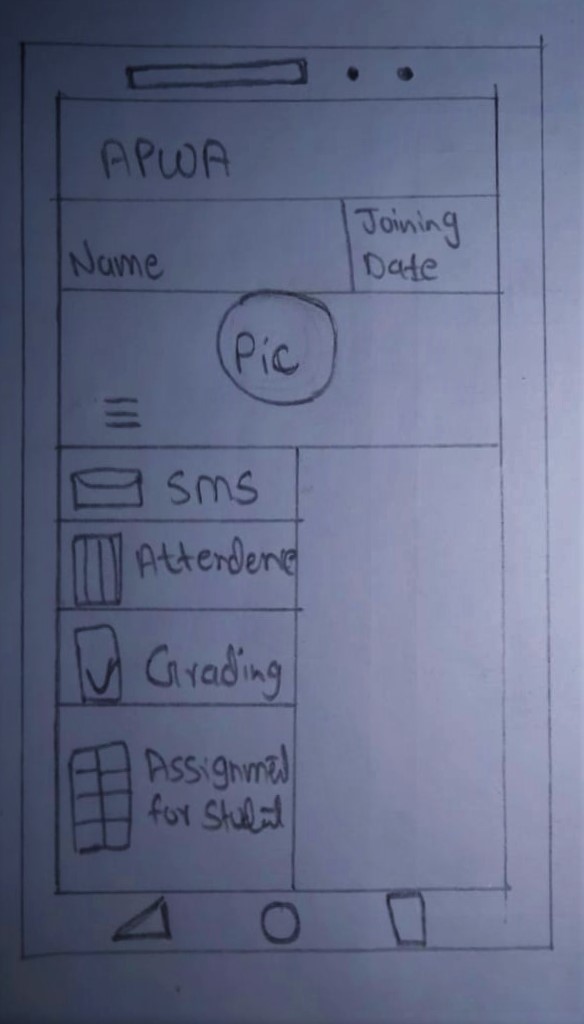 APWA
Name
Joining
Date
Pic
SMS
Attendene
Grading
Assignmet
for Studet